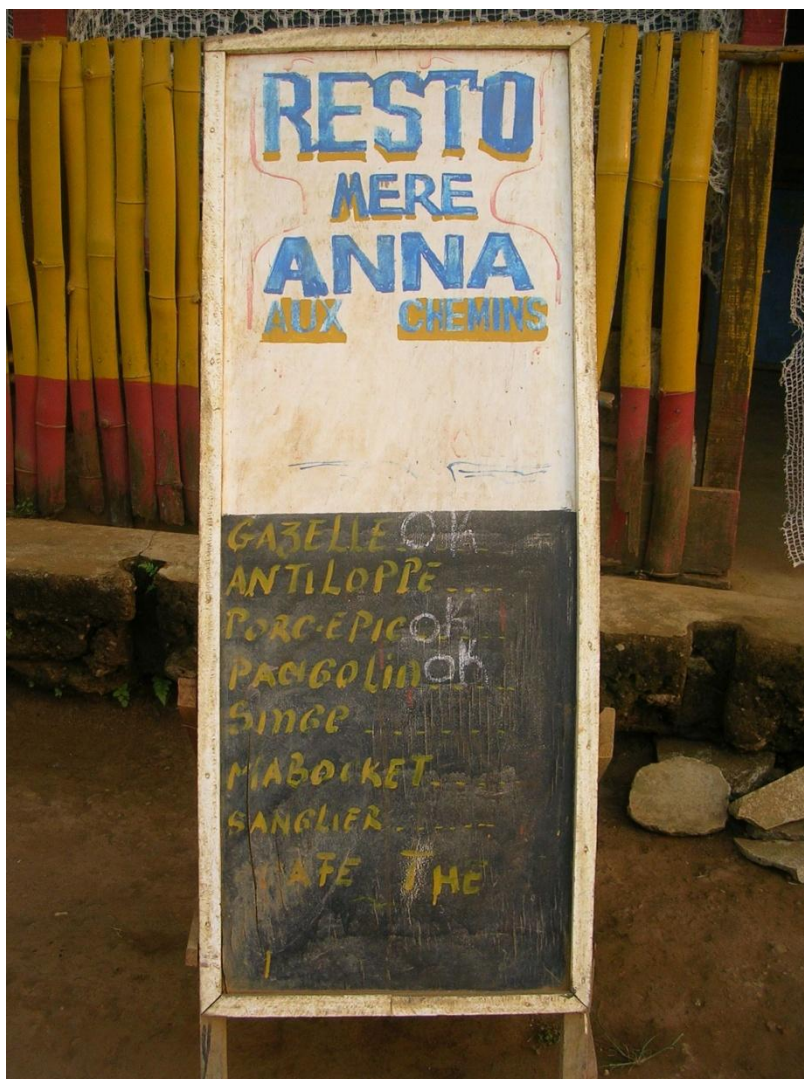 RESTO
MERE
ANNA
AUX CHEMINS
GAZELLE OK
ANTILOPPE
PORC-EPIC OK
PANGOLIN OK
SINGE
MABOCKET
SANGLIER
CAFE THE